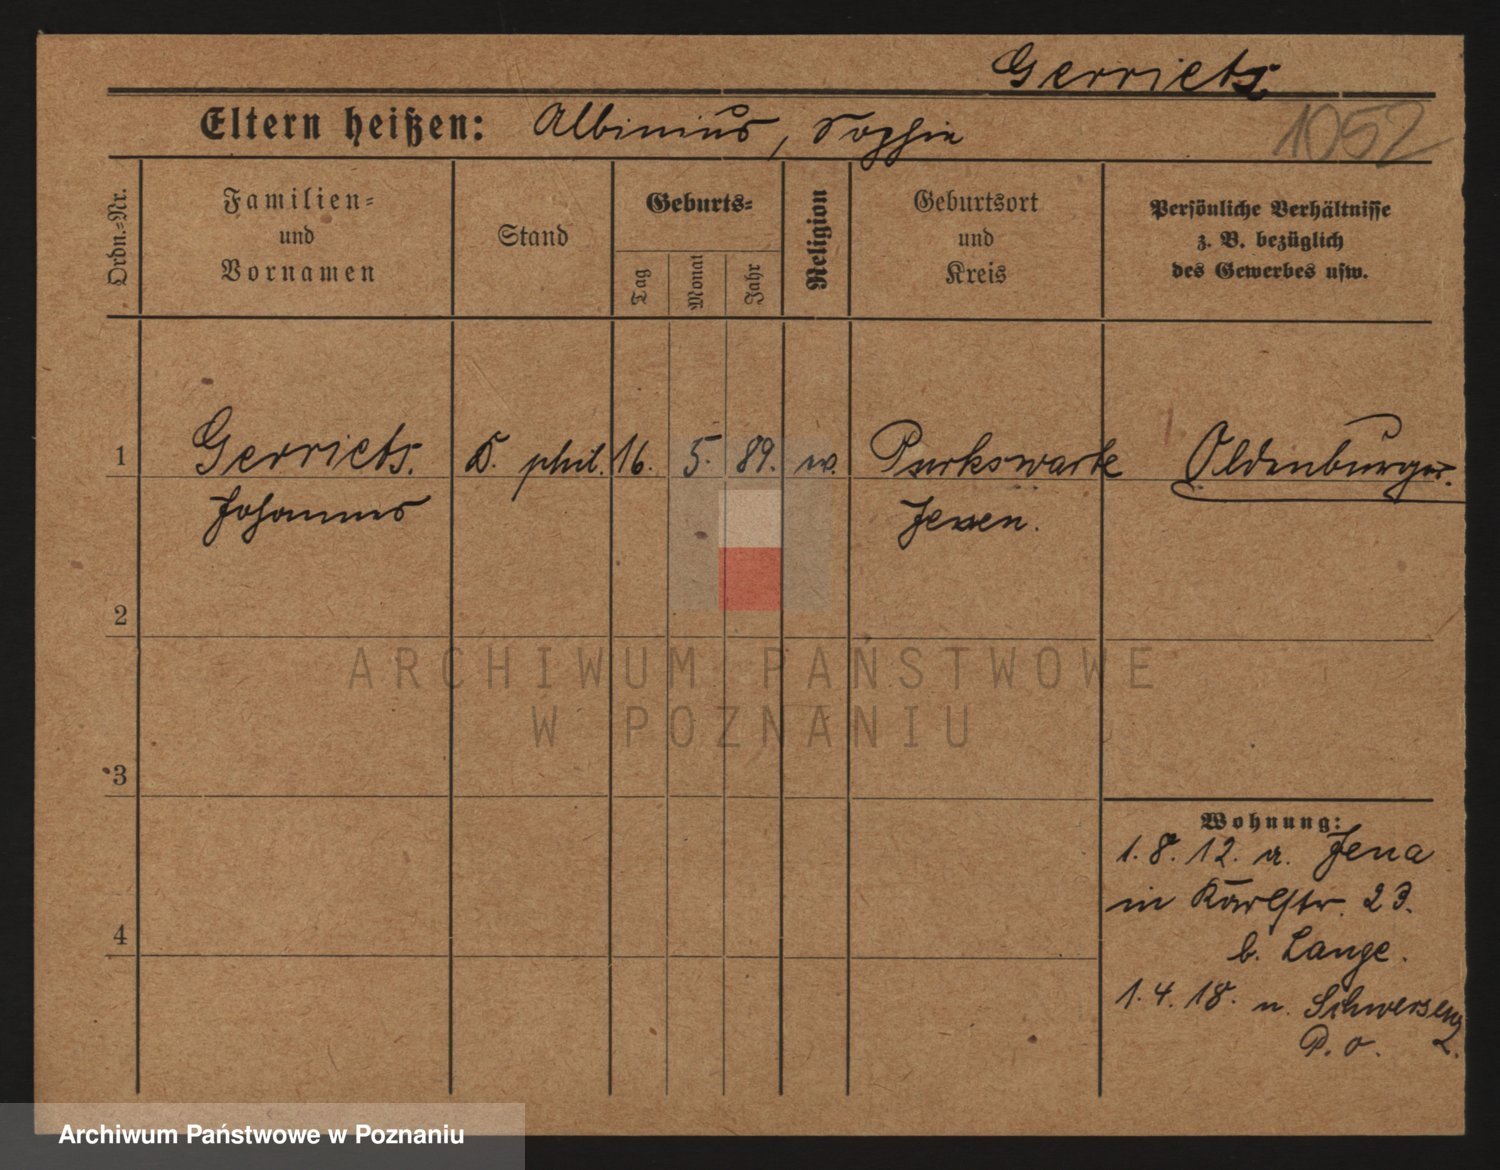 Gerriets
1052
Eltern heißen: Albinius, Sophie
Ordn.-Nr.
Familien-
und
Vornamen
Stand
Geburts-
Tag
Monat
Jahr
Religion
Geburtsort
und
Kreis
Persönliche Verhältnisse
z. B. bezüglich
des Gewerbes usw.
1 Gerriets. D. phil. 16. 5. 89. w. Purkswarfe Oldenburger.
Johannes Jever.
2
ARCHIWUM PAŃSTWOWE
W POZNANIU
3
Wohnung:
1. 8. 12. a. Jena
in Karlstr. 23.
b. Lange.
4
1. 4. 18. n. Schwersenz
P. O.
Archiwum Państwowe w Poznaniu